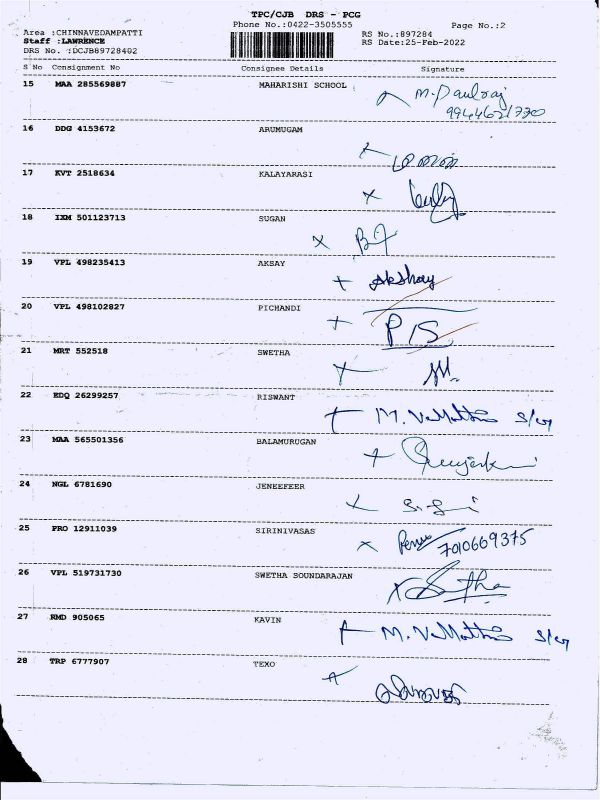 TPC/CJB DRS - PCG
Phone No.:0422-3505555 Page No.:2
Area :CHINNAVEDAMPATTI RS No.:897284
Staff :LAWRENCE RS Date:25-Feb-2022
DRS No. :DCJB89728402
S No Consignment No Consignee Details Signature
15 MAA 285569887 MAHARISHI SCHOOL M. Paulraj
9944621730
16 DDG 4153672 ARUMUGAM
17 KVT 2518634 KALAYARASI
18 IXM 501123713 SUGAN
19 VPL 498235413 AKSAY Akshay
20 VPL 498102827 PICHANDI P/S
21 MRT 552518 SWETHA
22 EDQ 26299257 RISWANT
23 MAA 565501356 BALAMURUGAN
24 NGL 6781690 JENEEFEER
25 PRO 12911039 SIRINIVASAS 7010669375
26 VPL 519731730 SWETHA SOUNDARAJAN
27 RMD 905065 KAVIN
28 TRP 6777907 TEXO